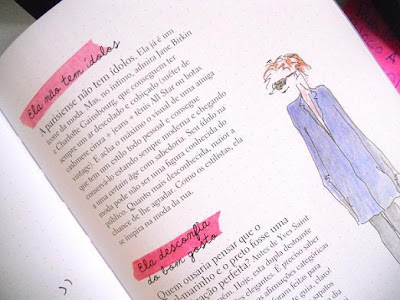 Ela não tem ídolos
A parisiense não tem ídolos. Ela já é um
ícone da moda. Mas, no íntimo, admira Jane Birkin
e Charlotte Gainsbourg, que conseguem ter
sempre um ar descolado e cobiçado (suéter de
cashmere cinza + jeans + tênis All Star ou botas
vintage). E acha o máximo o visual de uma amiga
que tem um estilo todo pessoal e consegue
conservá-lo estando sempre moderna e chegando
a uma certain âge com sabedoria. Seu ídolo na
moda pode não ser uma figura conhecida do
público. Quanto mais desconhecida, maior a
chance de lhe agradar. Como os estilistas, ela
se inspira na moda da rua.
Ela desconfia
do bom gosto
Quem ousaria pensar que o
marinho e o preto fosse uma
perfeita? Antes de Yves Saint
Hoje, esta dupla destoante
elegantes. É preciso saber
dimuições categóricas
foram feitas para